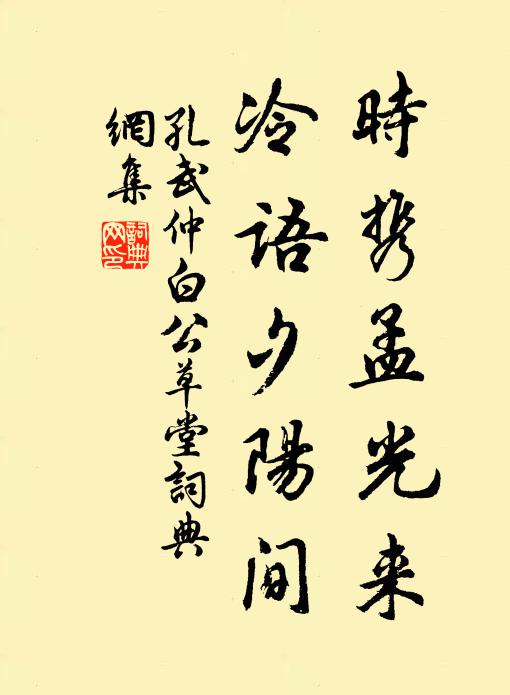 時携孟光来
冷語夕陽间
孔武仲白公草堂詞典
網集
詞典网印